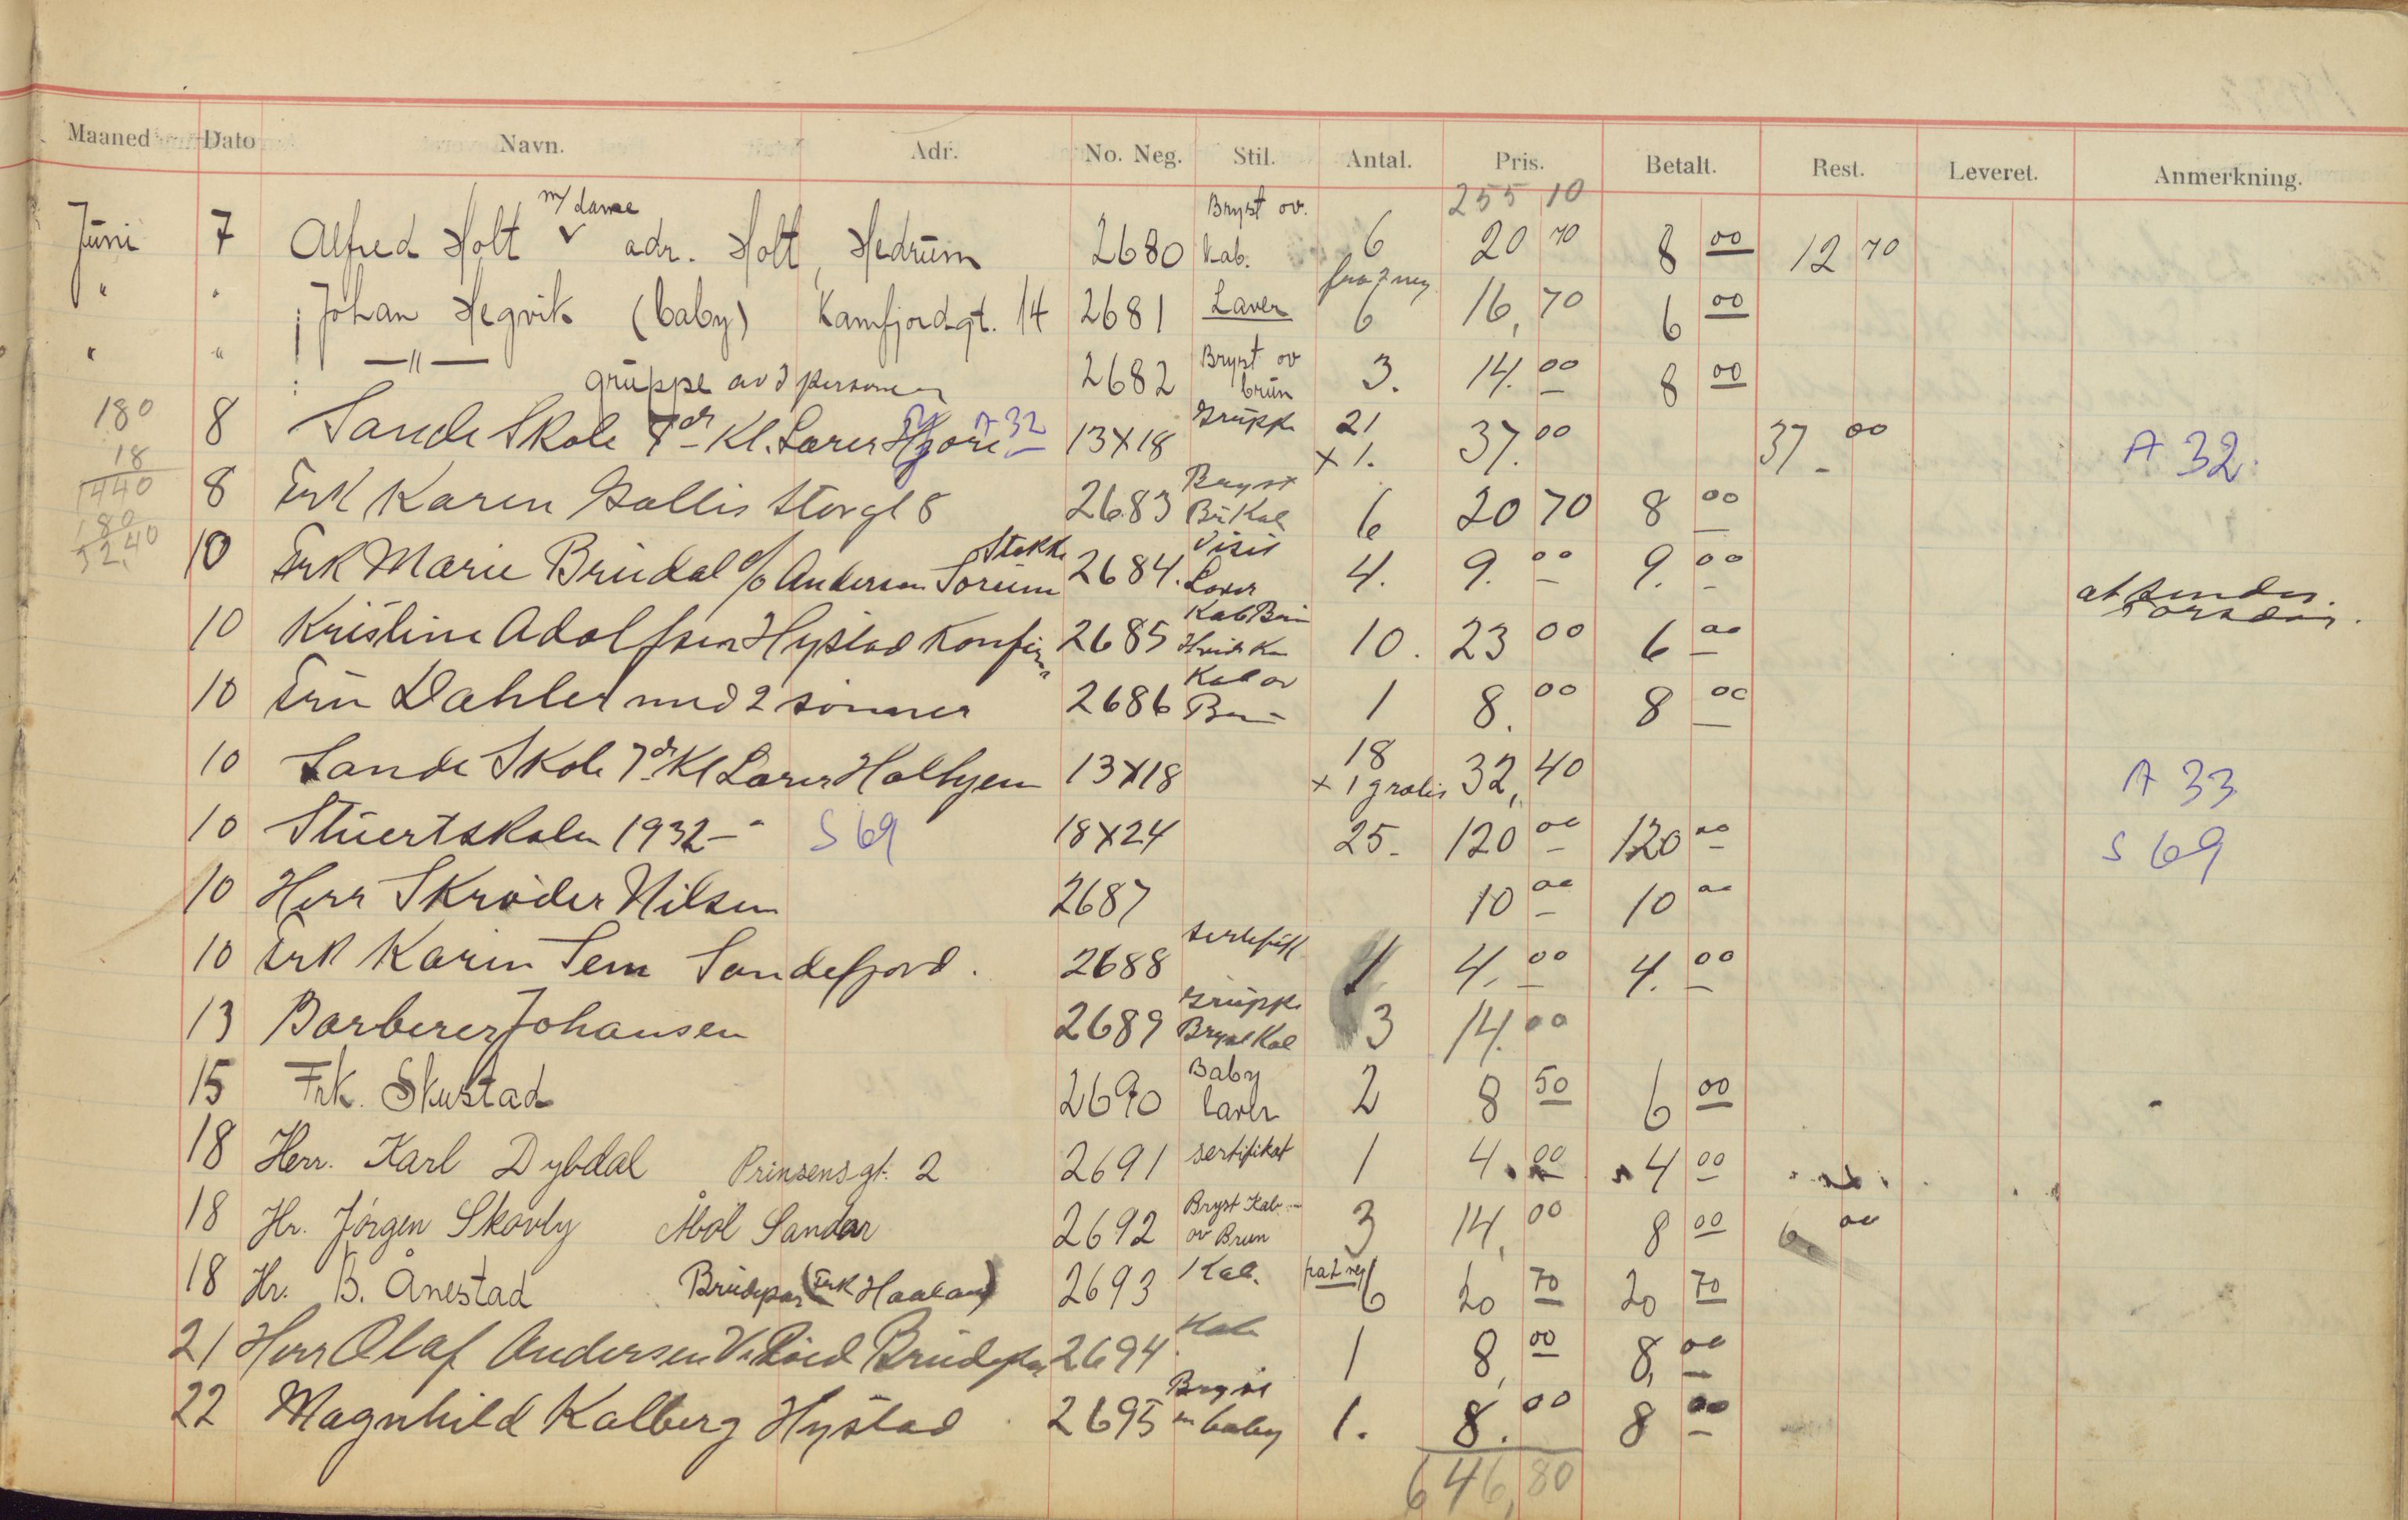 Maaned Dato Navn. Adr. No. Neg. Stil. Antal. Pris. Betalt. Rest. Leveret. Anmerkning.
255 10
Juni 7 Alfred Holt m/dame adr. Holt, Hedrum 2680 Bryst ov. Kab. 6 20 70 8 00 12 70
" " Johan Hegvik (baby) Kamfjordgt. 14 2681 Laver 6 16,70 6 00
" " —"— gruppe av 3 personer 2682 Bryst ov brun 3. 14.00 8 00
180 8 Sande Skole 7de Kl. Lærer A 32 13X18 Gruppe 21 x 1. 37.00 37.00 A 32.
18
1440 8 Frk Karen Gallis Storgt 8 2683 Bryst Kab 6 20 70 8 00
180
32,40 10 Frk Marie Brudal c/o Andersen Sørum Stokke 2684. Visit Laver 4. 9.00 9.00 at sendes
10 Kristine Adolfsen Hystad Konfirm 2685 Kab 10. 23 00 6 00
10 Fru Dahler med 2 sønner 2686 Kab ov 1 8.00 8 00
10 Sande Skole 7de Kl Lærer Holhjem 13X18 18 x 1 gratis 32,40 A 33
10 Stuertskolen 1932 – S 69 18X24 25. 120 00 120 00 S 69
10 Herr Skrøder Nilsen 2687 10 00 10 00
10 Frk Karin Sem Sandefjord. 2688 sertifik 1 4.00 4.00
13 Barberer Johansen 2689 Gruppe Bryst Kab 3 14.00
15 Frk. Skustad 2690 Baby laver 2 8 50 6 00
18 Herr. Karl Dybdal Prinsensgt. 2 2691 sertifikat 1 4.00 4 00
18 Hr. Jørgen Skovly Åbøl Sandar 2692 Bryst Kab. ov Brun 3 14,00 8 00 6 00
18 Hr. B. Ånestad Brudepar (Frk Haaland) 2693 Kab. 6 20 70 20 70
21 Herr Olaf Andersen Brudepar 2694 Kab 1 8,00 8,00
22 Magnhild Kalberg Hystad 2695 Bryst m baby 1. 8.00 8 00
646,80